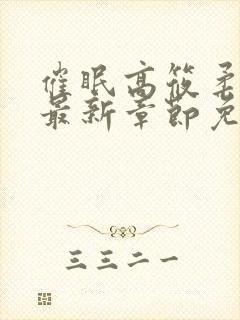 催眠高筱柔
最新章节免
三三二一